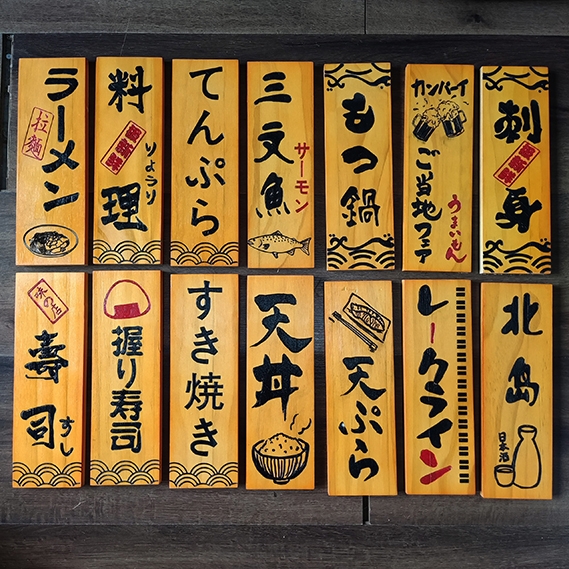 ラーメン
拉麵
料理
りょうり
てんぷら
三文魚
サーモン
もつ鍋
カンパーイ
ご当地フェア
うまいもん
刺身
味の店
壽司
すし
握り寿司
すき焼き
天丼
天ぷら
レークライン
北島
日本酒